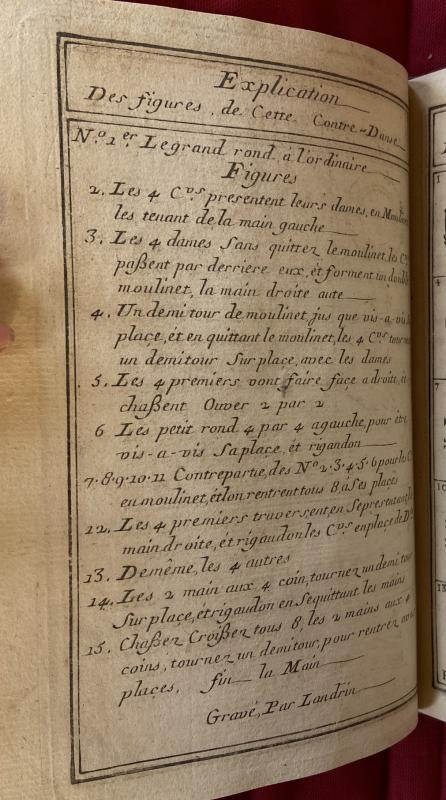 Explication
Des figures, de Cette Contre-Danse
N.º 1.er Le grand rond à l'ordinaire
Figures
2. Les 4 C.vs presentent leurs dames, en Moulinet
les tenant de la main gauche
3. Les 4 dames Sans quittez le moulinet, les C.vs
paßent par derriere eux, ét forment un double
moulinet, la main droite aute
4. Un demi tour de moulinet, jus que vis-a-vis Sa
place, ét en quittant le moulinet, les 4 C.vs tourne
un demi tour Sur place, avec les dames
5. Les 4 premiers vont faire face a droite, ét
chaßent Ouver 2 par 2
6 Les petit rond 4 par 4 agauche, pour être
vis-a-vis Sa place, ét rigaudon
7.8.9.10.11 Contrepartie, des Nº 2.3.4.5.6 pour les C.vs
eu moulinet, ét lon rentrent tous 8, a Ses places
12. Les 4 premiers traversent en Se presentant la
main droite, ét rigaudon les C.vs en place de D.s
13. De même, les 4 autres
14. Les 2 main aux 4 coin, tournez un demi tour
Sur place, ét rigaudon en Sequittant les mains
15. Chaßez Croißez tous 8, les 2 mains aux 4
coins, tournez un demi tour, pour rentrez
plaçes. fin la Main
Gravé, Par Landrin